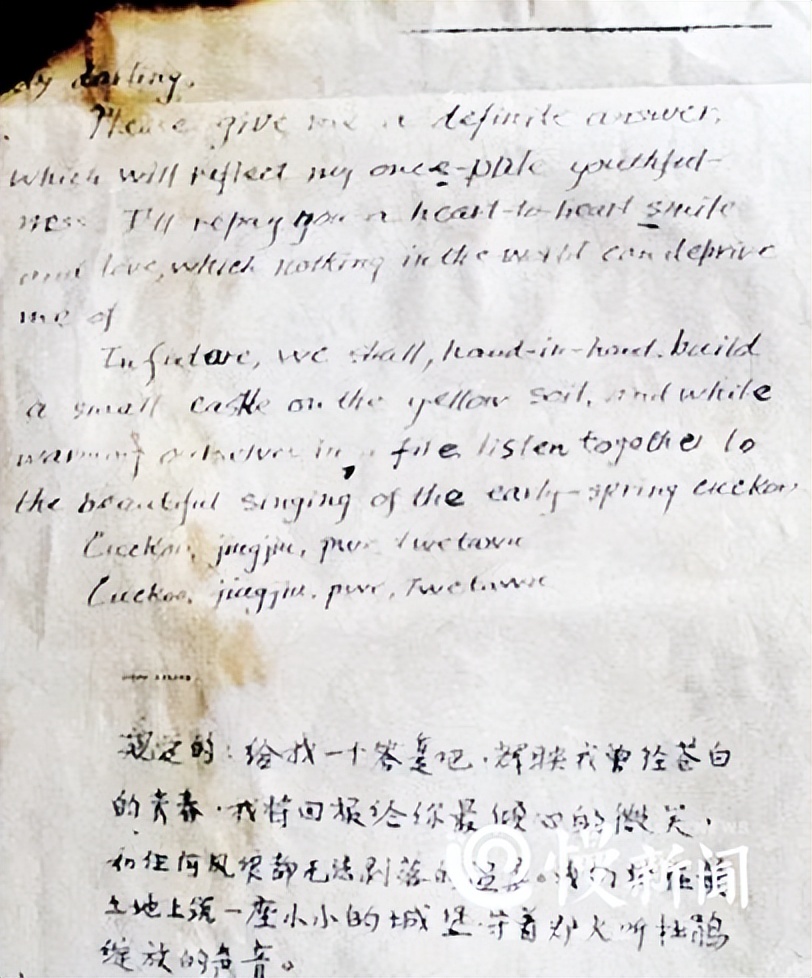 My darling,
Please give me a definite answer,
which will reflect my once-pale youthful-
ness. I'll repay you a heart-to-heart smile
and love, which nothing in the world can deprive
me of
In future, we shall, hand-in-hand. build
a small castle on the yellow soil, and while
warming ourselves in a fire listen together to
the beautiful singing of the early-spring cuckoo
Cuckoo, jugjiu, pwe,
Cuckoo, jugjiu, pwe,
给我一个答复吧,辉映我曾经苍白
的青春,我将回报给你最倾心的微笑,
和任何风须都无法剥落的
土地上筑一座小小的城堡 守着炉火听杜鹃
绽放的声音。
慢新闻